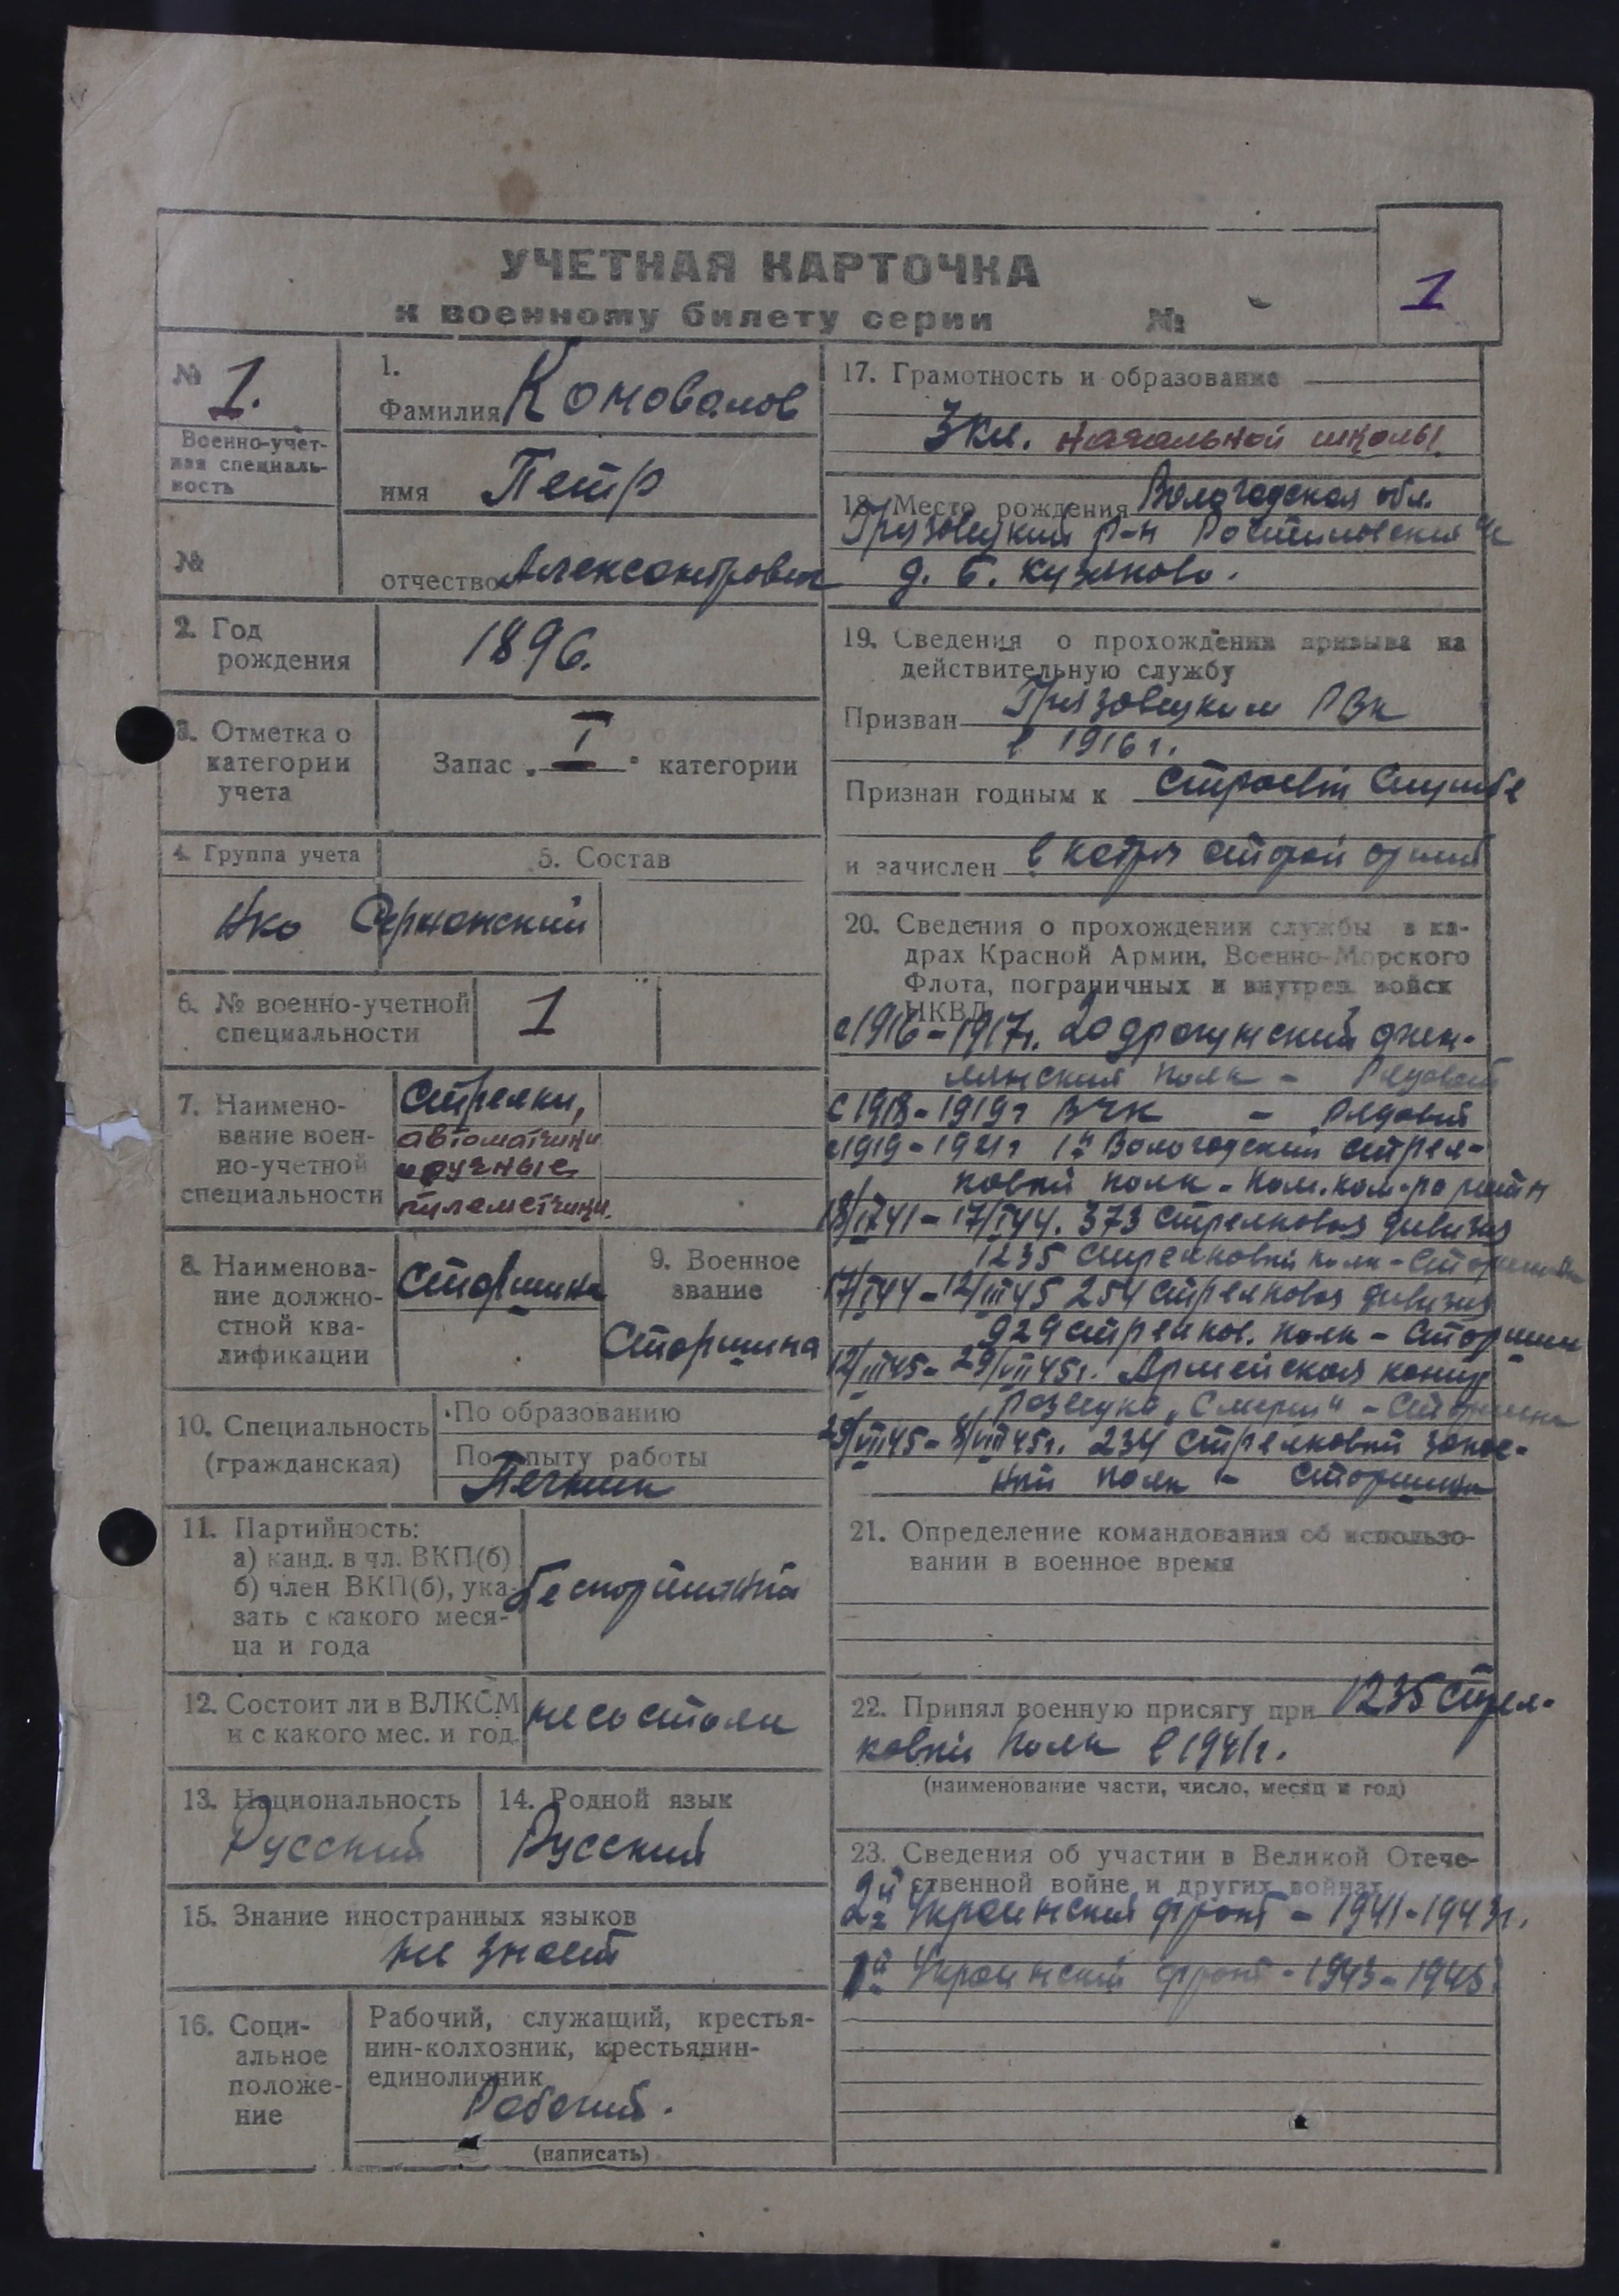 УЧЕТНАЯ КАРТОЧКА
к военному билету серии №
1
№ 1.
Военно-учет-
ная специаль-
ность
№
1.
Фамилия Коновалов
имя Петр
отчество Александрович
2. Год
рождения
1896.
3. Отметка о
категории
учета
Запас „I" категории
4. Группа учета
5. Состав
НКО Сержанский
6. № военно-учетной
специальности
1
7. Наимено-
вание воен-
но-учетной
специальности
Стрелки,
автоматчики
и ручные
пулеметчики.
8. Наименова-
ние должно-
стной ква-
лификации
Старшина
9. Военное
звание
Старшина
10. Специальность
(гражданская)
По образованию
По опыту работы
Печник
11. Партийность:
а) канд. в чл. ВКП(б)
б) член ВКП(б), ука-
зать с какого меся-
ца и года
беспартийный
12. Состоит ли в ВЛКСМ
и с какого мес. и год.
не состоял
13. Национальность
Русский
14. Родной язык
Русский
15. Знание иностранных языков
не знает
16. Соци-
альное
положе-
ние
Рабочий, служащий, крестья-
нин-колхозник, крестьянин-
единоличник
Рабочий.
(написать)
17. Грамотность и образование
3 кл. начальной школы.
18. Место рождения Вологодская обл.
Грязовецкий р-н Ростиловский с/с
д. Б. Кузяково.
19. Сведения о прохождении призыва на
действительную службу
Призван Грязовецким РВК
в 1916 г.
Признан годным к строевой службе
и зачислен в старой армии
20. Сведения о прохождении службы в ка-
драх Красной Армии, Военно-Морского
Флота, пограничных и внутрен. войск
НКВД
с 1916-1917г. 20 драгунский финн-
ляндский полк - Рядовой
с 1918-1919г ВЧК - Рядовой
с 1919-1921г 1й Вологодский стрел-
ковый полк - Пом.
18/IX 41 - 17/I 44. 373 стрелковая дивизия
1235 стрелковый полк - Старшина
17/I 44 - 12/III 45 254 стрелковая дивизия
929 стрелков. полк - Старшина
12/III 45 - 29/VII 45г. Армейская контр
разведка „Смерш" - Старшина
29/VII 45 - 8/VIII 45г. 234 стрелковый запас-
ный полк - Старшина
21. Определение командования об использо-
вании в военное время
22. Принял военную присягу при 1235 стрел-
ковый полк в 1941г.
(наименование части, число, месяц и год)
23. Сведения об участии в Великой Отече-
ственной войне и других войнах
2й Украинский фронт - 1941-1943г.
1й Украинский фронт - 1943-1945